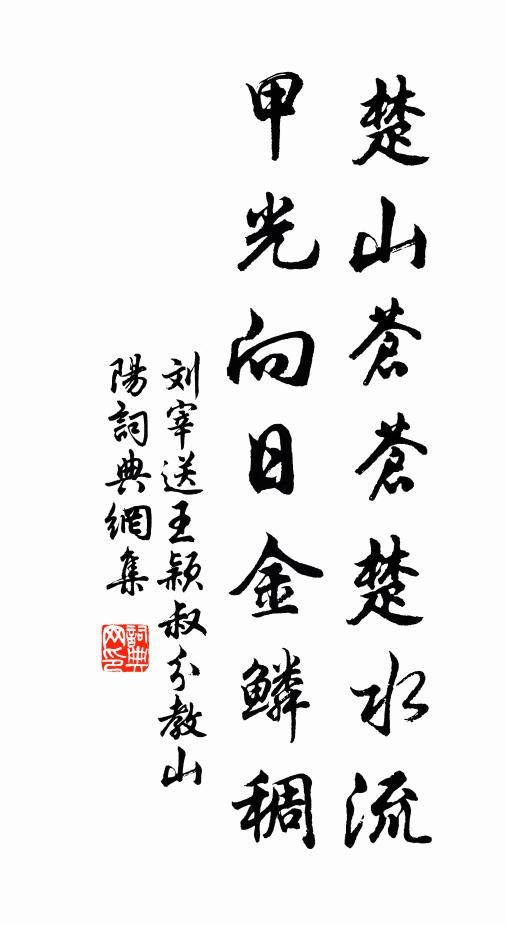 楚山蒼蒼楚水流
甲光向日金鱗稠
刘宰送王颖叔分教山
陽詞典網集
詞典
网印